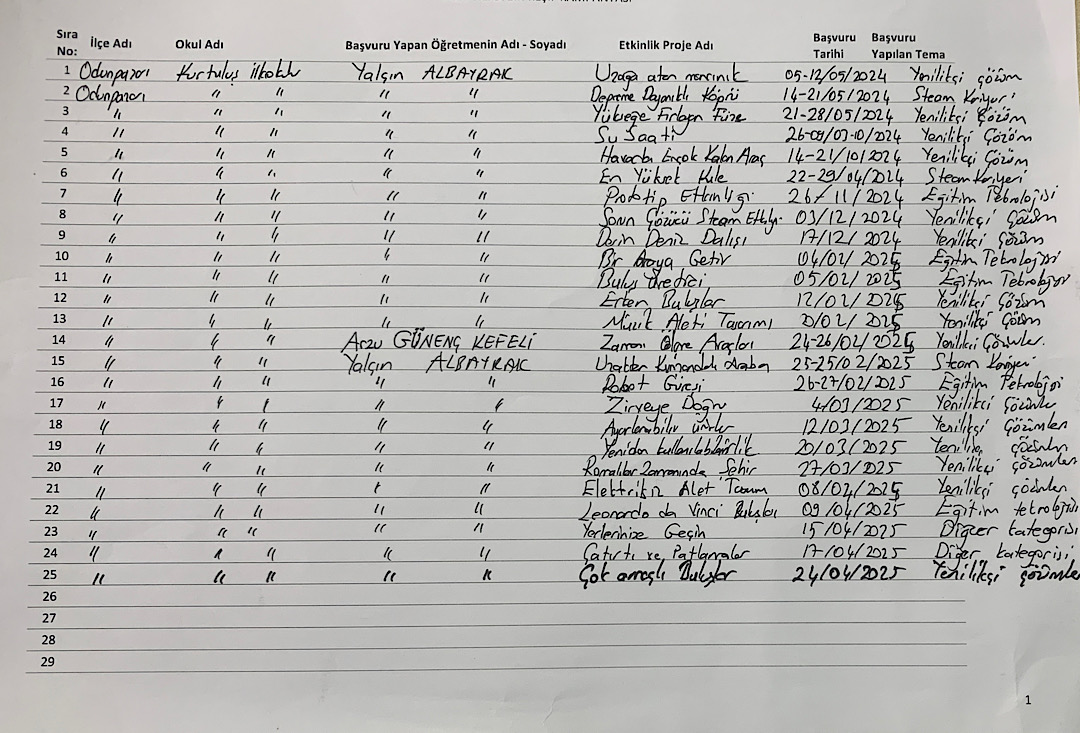 Sıra No: İlçe Adı Okul Adı Başvuru Yapan Öğretmenin Adı - Soyadı Etkinlik Proje Adı Başvuru Tarihi Başvuru Yapılan Tema
1 Odunpazarı Kurtuluş ilkokulu Yalçın ALBAYRAK Uzağa atan mancınık 05-12/05/2024 Yenilikçi çözüm
2 Odunpazarı " " " " Depreme Dayanıklı Köprü 14-21/05/2024 Steam Kariyer
3 " " " " " Yükseğe Fırlayan Füze 21-28/05/2024 Yenilikçi Çözüm
4 " " " " " Su Saati 2024 Yenilikçi Çözüm
5 " " " " " Havada Ençok Kalan Araç 14-21/10/2024 Yenilikçi Çözüm
6 " " " " " En Yüksek Kule 22-29/04/2024 Steam Kariyeri
7 " " " " " Prototip Etkinliği 26/11/2024 Eğitim Teknolojisi
8 " " " " " Sorun Çözücü Steam 03/12/2024 Yenilikçi Çözüm
9 " " " " " Derin Deniz Dalışı 17/12/2024 Yenilikçi Çözüm
10 " " " " " Bir Araya Getir 04/02/2025 Eğitim Teknolojisi
11 " " " " " Buluş Üretici 05/02/2025 Eğitim Teknolojisi
12 " " " " " Erken Buluşlar 12/02/2025 Yenilikçi Çözüm
13 " " " " " Müzik Aleti Tasarımı 20/02/2025 Yenilikçi Çözüm
14 " " " Arzu GÜNENÇ KEFELİ Zamanı Ölçme Araçları 24-26/02/2025 Yenilikci Çözümler.
15 " " " Yalçın ALBAYRAK Uzaktan Kumandalı Araba 25-25/02/2025 Steam Kariyeri
16 " " " " " Robot Güreşi 26-27/02/2025 Eğitim Teknolojisi
17 " " " " " Zirveye Doğru 4/03/2025 Yenilikci Çözümler
18 " " " " " Ayarlanabilir ürünler 12/03/2025 Yenilikçi Çözümler
19 " " " " " Yeniden kullanılabilirlik 20/03/2025 çözümler
20 " " " " " Romalılar Zamanında Şehir 27/03/2025 Yenilikçi çözümler
21 " " " " " Elektriksiz Alet Tasarım 08/04/2025 Yenilikçi çözümler
22 " " " " " Leonardo da Vinci Buluşları 09/04/2025 Eğitim teknolojisi
23 " " " " " Yerlerinize Geçin 15/04/2025 Diğer kategorisi
24 " " " " " Çatırtı ve Patlamalar 17/04/2025 Diğer kategorisi
25 " " " " " Çok amaçlı Buluşlar 24/04/2025 Yenilikçi çözümler
26
27
28
29
1